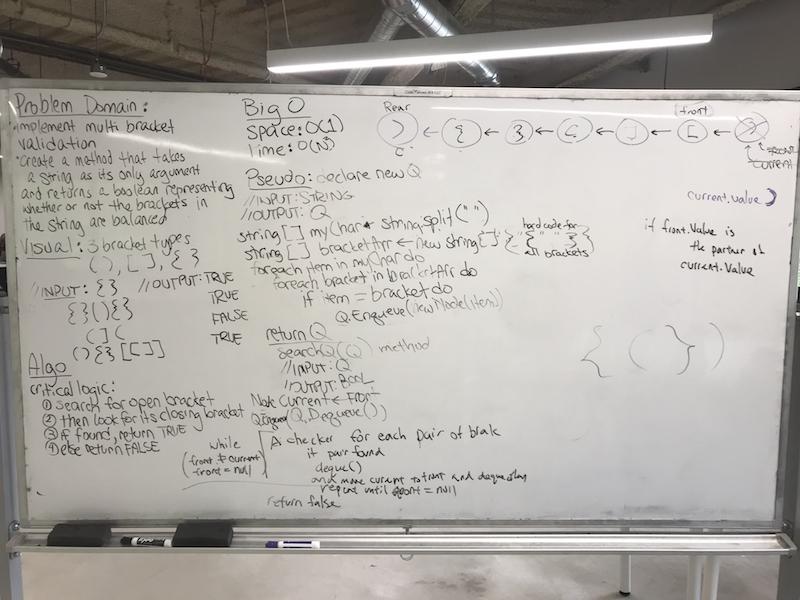 Problem Domain:
• Implement multi bracket
validation
• Create a method that takes
a string as its only argument
and returns a boolean representing
whether or not the brackets in
the string are balanced
Visual: 3 bracket types
( ), [ ], { }
//INPUT: { } //OUTPUT: TRUE
{ } ( ) { } TRUE
( ] ( FALSE
( ) { } [ [ ] ] TRUE
Algo
critical logic:
① search for open bracket
② then look for its closing bracket
③ if found, return TRUE
④ else return FALSE
Big O
space: O(1)
time: O(N)
Pseudo: declare new Q
//INPUT: STRING
//OUTPUT: Q
string [] myChar string.split(" ")
string [] bracketArr ← new String[]
{ hard code for
all brackets }
foreach item in myChar do
foreach bracket in bracketArr do
if item = bracket do
Q.Enqueue(new Node(item)
return Q
searchQ(Q) method
//INPUT: Q
//OUTPUT: BOOL
Node Current ← Front
Q.Enqueue(Q.Dequeue())
while
(front ≠ current
front = null)
A checker for each pair of brak
if pair found
deque()
and move current to front and deque
repeat until front = null
return false
Rear
front
) ← { ← } ← ← ] ← [ ←
C
CURRENT
current.value )
if front.Value is
the partner of
current.Value
{ ( } )